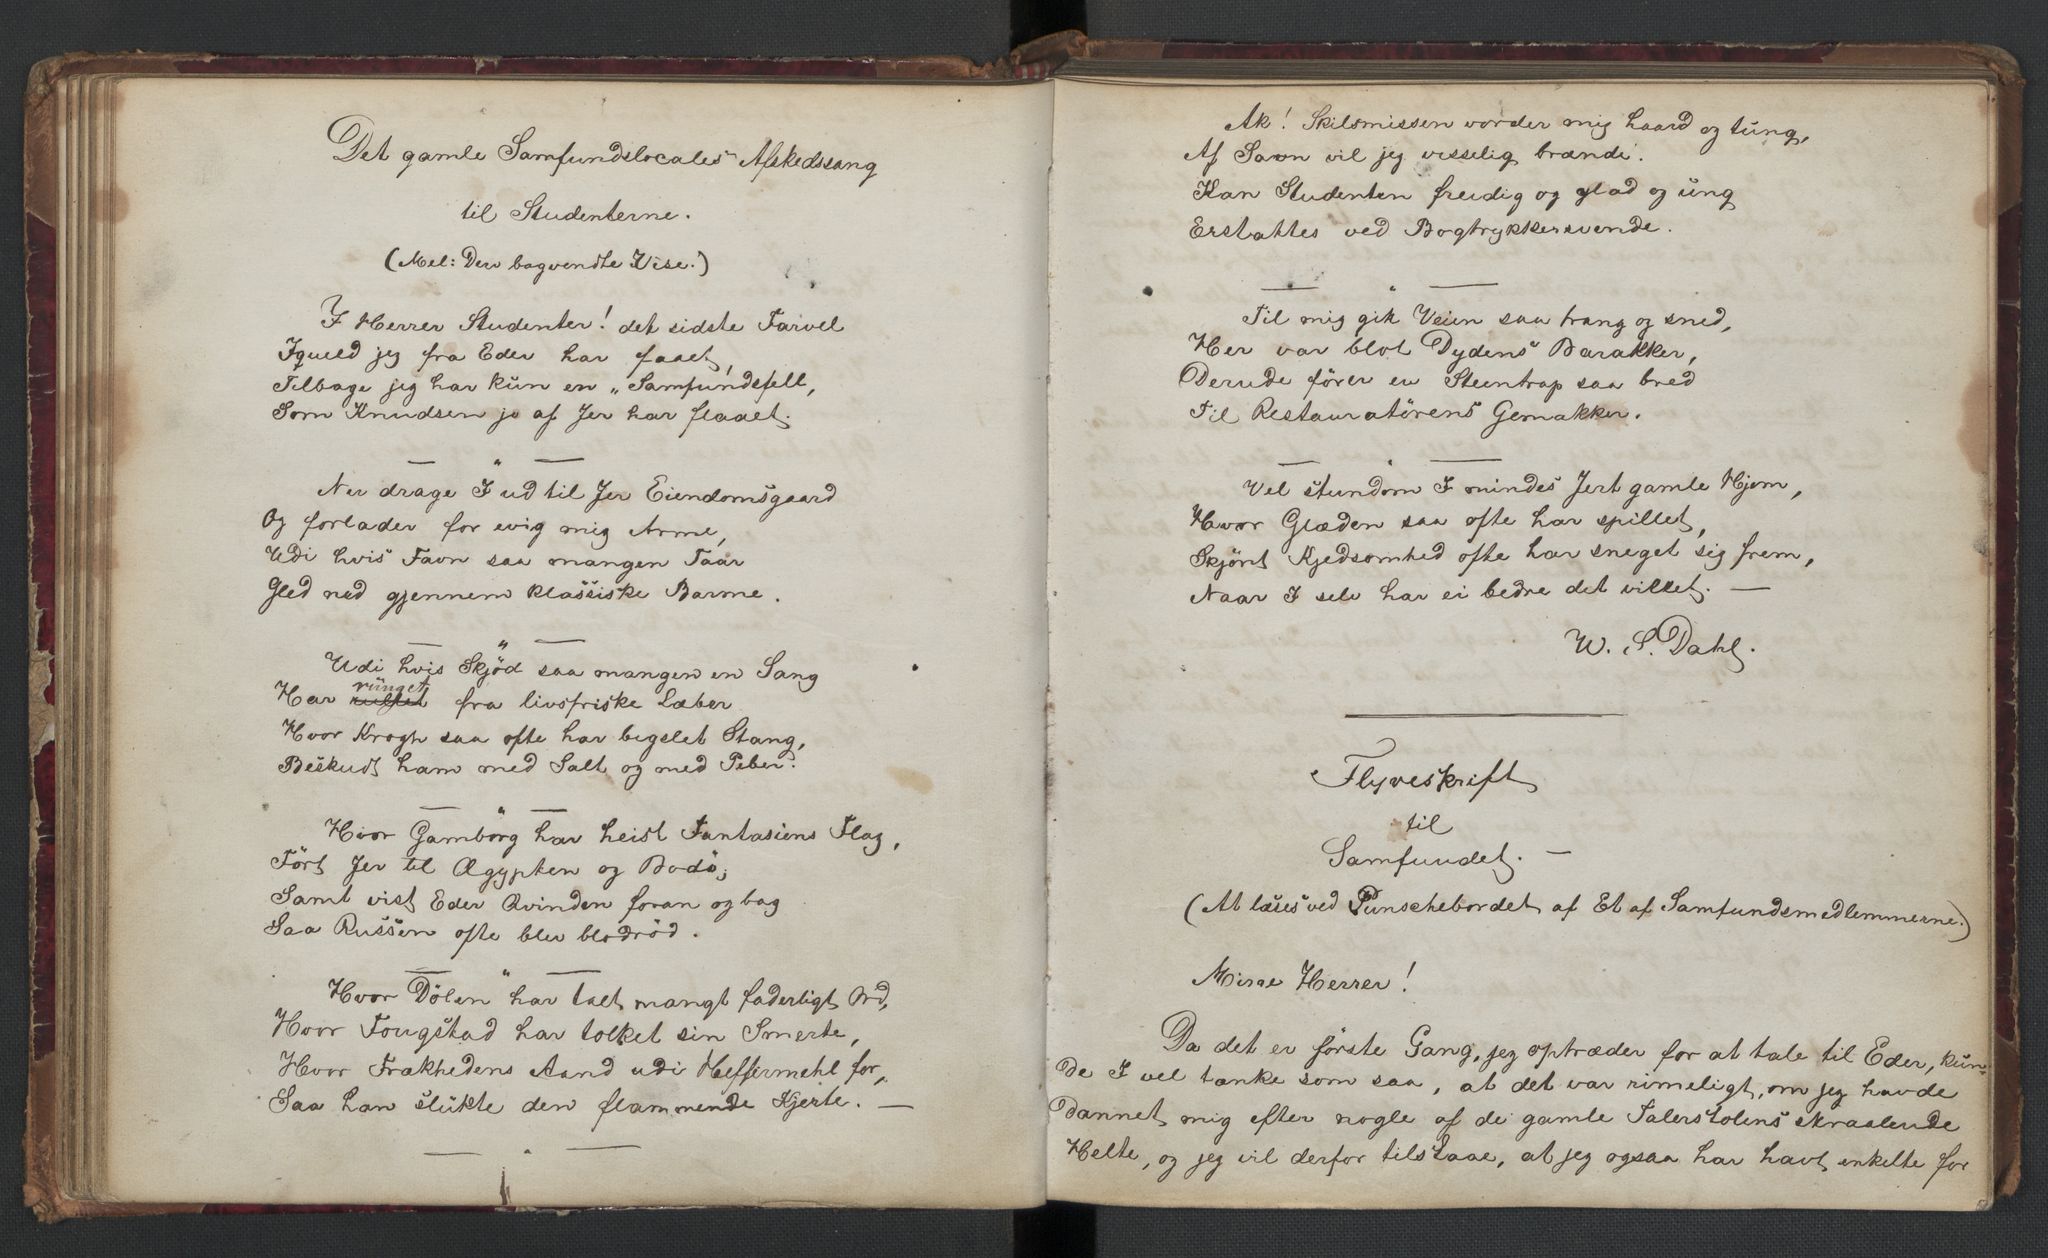 Det gamle Samfundslocales Afskedssang
til Studenterne.
(Mel: Den bagvendte Vise.)
I Herrer Studenter! det sidste Farvel
Iqueld jeg fra Eder har faaet,
Tilbage jeg har kun en „Samfundsfell,
Som Knudsen jo af Jer har flaaet.
Nu drage I ud til Jer Eiendomsgaard
Og forlader for evig mig Arme,
Udi hvis Favn saa mangen Taar
Gled ned gjennem klassiske Barme.
Udi hvis Skjød saa mangen en Sang
runget
Har fra livsfriske Læber
Hvor Krogh saa ofte har beglet Stang,
Beskudt ham med Salt og med Peber.
Hvor Gamborg har heist Fantasiens Flag,
Ført Jer til Ægypten og Bodø,
Samt vist Eder Qvinden foran og bag
Saa Russen ofte blev blodrød.
Hvor Dölen har talt mangt faderligt Ord,
Hvor Fougstad har tolket sin Smerte,
Hvor Frækhedens Aand udi Heffermehl for,
Saa han slukte den flammende Kjerte. —
Ak! Skilsmissen vorder mig haard og tung,
Af Savn vil jeg visselig brænde.
Kan Studenten freidig og glad og ung
Erstattes ved Bogtrykkersvende.
Til mig gik Veien saa trang og sned,
Her var blot Dydens Barakker,
Derude fører en Steentrap saa bred
Til Restauratørens Gemakker.
Vel stundom I mindes Jert gamle Hjem,
Hvor Glæden saa ofte har spillet,
Skjønt Kjedsomhed ofte har sneget sig frem,
Naar I selv har ei bedre det villet. —
W. S. Dahl.
Flyveskrift
til
Samfundet. —
(At læses ved Punschebordet af Et af Samfundsmedlemmerne.)
Mine Herrer!
Da det er første Gang, jeg optræder for at tale til Eder, kun-
de I vel tænke som saa, at det var rimeligt, om jeg havde
dannet mig efter nogle af de gamle Talerstolens skraalende
Helte, og jeg vil derfor tilstaae, at jeg ogsaa har havt enkelte for